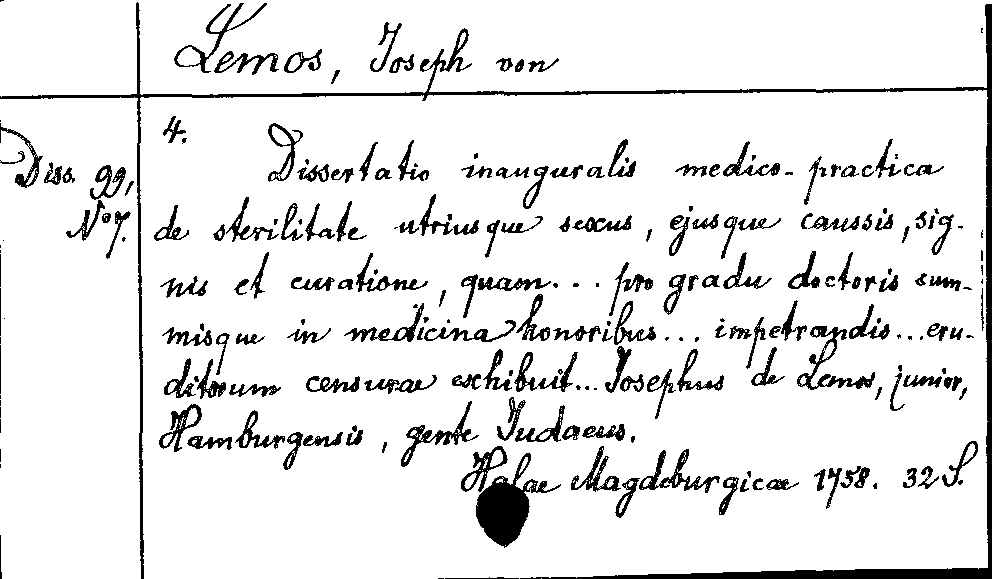 Lemos, Joseph von
4.
Diss. 99,
No 7.
Dissertatio inauguralis medico-practica
de sterilitate utriusque sexus, ejusque caussis, sig-
nis et curatione, quam... pro gradu doctoris sum-
misque in medicina honoribus... impetrandis... eru-
ditorum censurae exhibuit... Josephus de Lemos, junior,
Hamburgensis, gente Judaeus.
Halae Magdeburgicae 1758. 32 S.